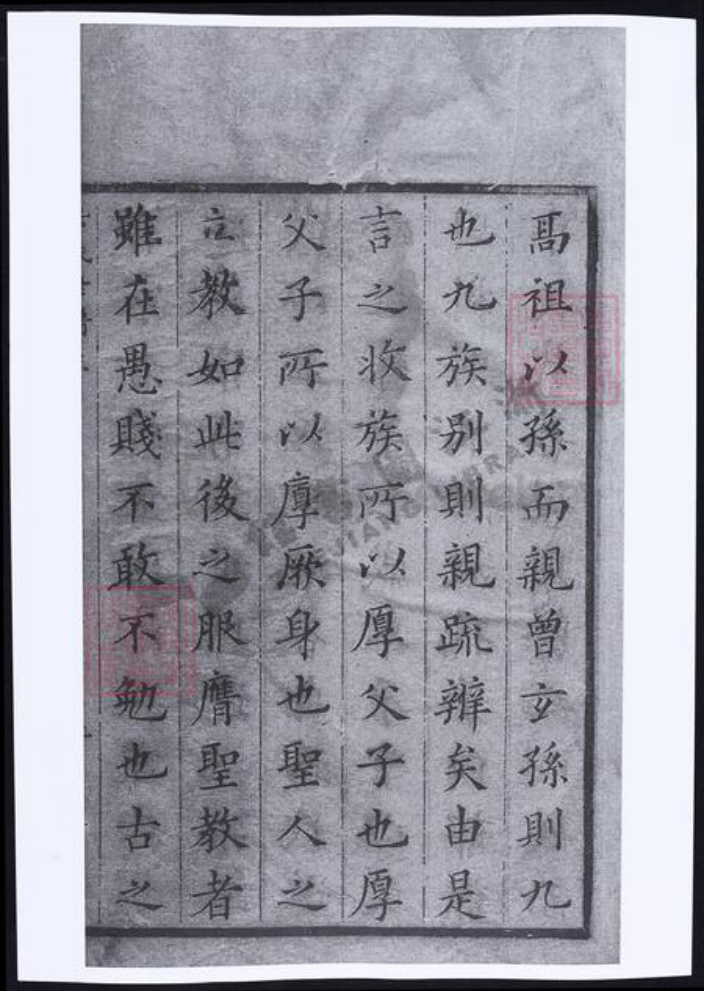 高祖以孫而親曾玄孫則九
也九族別則親疏辨矣由是
言之收族所以厚父子也厚
父子所以厚厥身也聖人之
立教如此後之服膺聖教者
雖在愚賤不敢不勉也古之